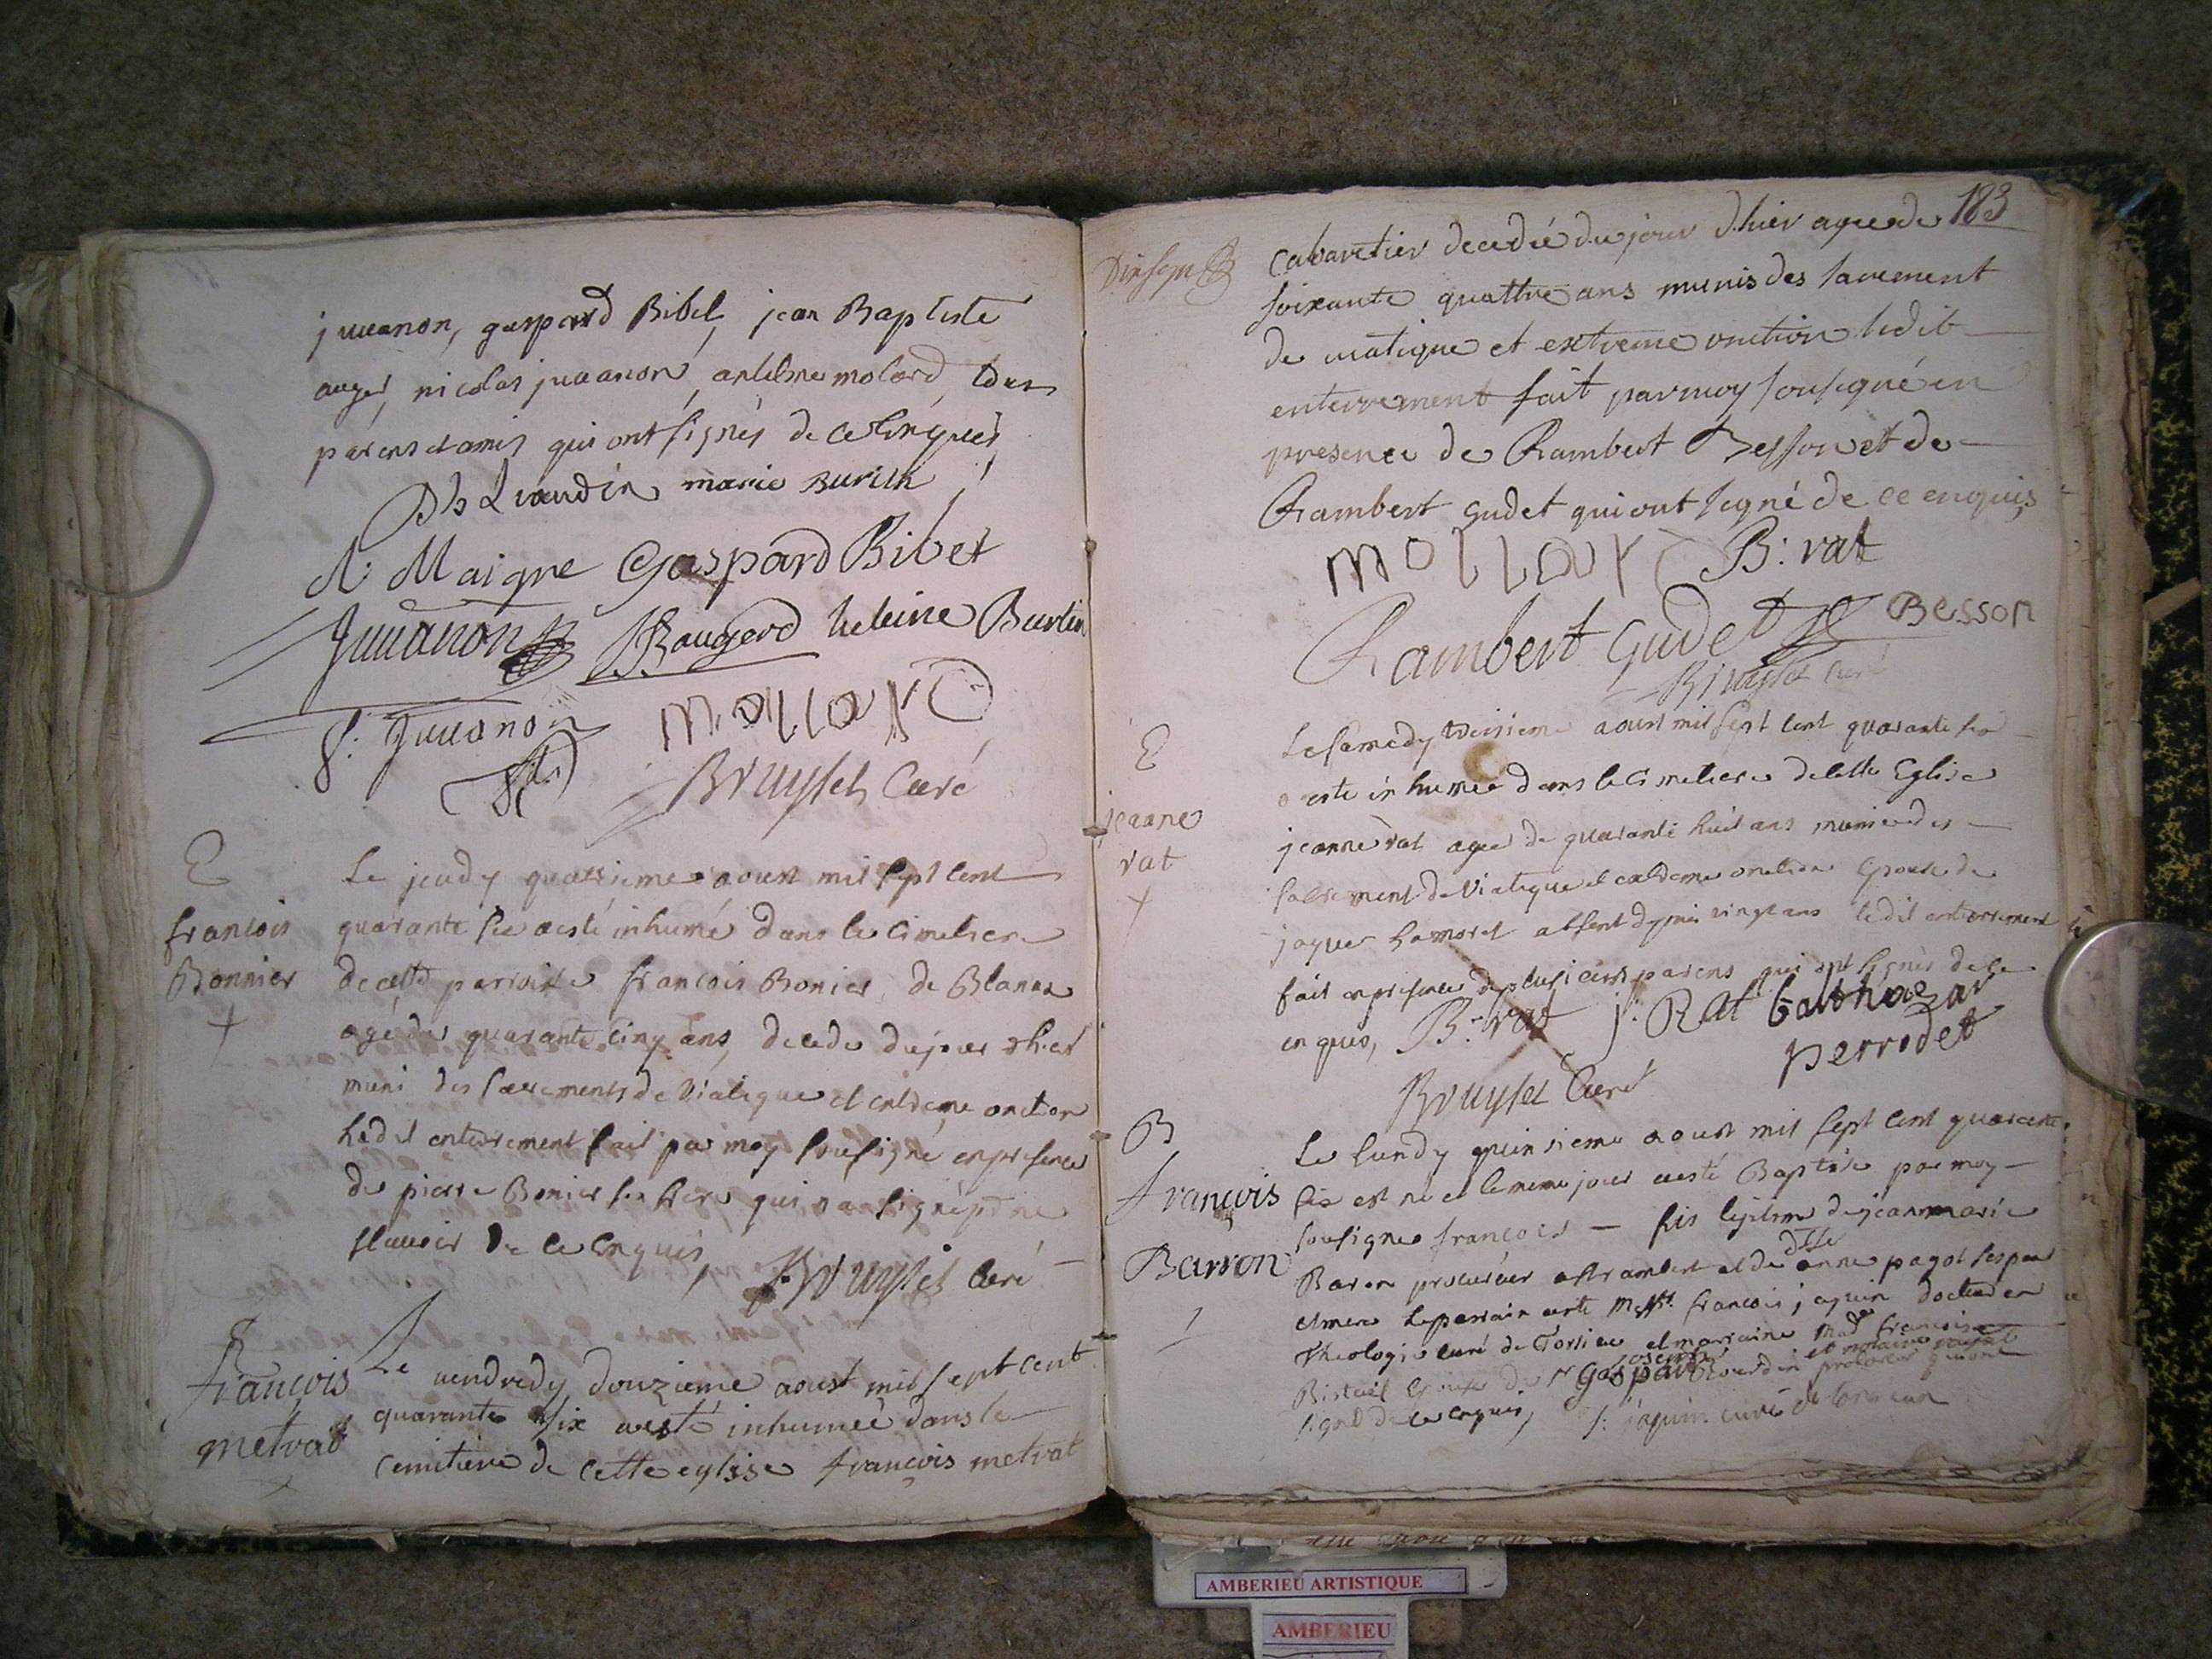 juvanon, gaspard Bibet, jean Baptiste
auger, nicolas juvanon, antelme molard, tous
parens et amis qui ont signés de ce enquis,
marie Burtin
Maigne Gaspard Bibet
Juvanon JBaugerd heleine Burtin
Juvanon mollard
Bruyset Curé
E
francois
Bonnier
Le jeudy quatrieme aoust mil sept cent
quarante six a esté inhumé dans le cimetiere
de cette parroisse francois Bonier, de Blanaz
agé de quarante cinq ans, decedé du jour d'hier
muni des sacrements de Viatique et extreme onction
ledit enterrement fait par moy sousigné en presence
de pierre Bonier son frere qui n'a signé pr ne
sçavoir de ce enquis,
Bruyset Curé
E
françois
metrat
Le vendredy douzieme aoust mil sept cent
quarante six a esté inhumeé dans le
cemitiere de cette eglise françois metrat
183
cabaretier decedé du jour d'hier agé de
soixante quattre ans munis des sacrement
de viatique et extreme onction ledit
enterrement fait par moy sousigné en
presence de Rambert Besson et de
Rambert Gudet qui ont signé de ce enquis
mollard B: rat
Rambert Gudet Besson
Bruyset Curé
E
jeanne
rat
Le samedy treisieme aoust mil sept cent quarante six
a esté inhumée dans le cimetiere de cette Eglise
jeanne rat agée de quarante huit ans munie des
sacrement de Viatique et extreme onction Epouse de
jaques hamoret absent depuis vingt ans ledit enterrement
fait en presence de plusieurs parens qui ont signés de ce
enquis, B: rat j: Rat balthazar
perrodet
Bruyset Curé
B
François
Barron
Le Lundy quinsieme aoust mil sept cent quarante
six est né et le meme jour a esté Baptisé par moy
sousigné francois — fils legitime de jean marie
Baron procureur a St rambert et de dlle anne pagot ses pere
et mere le parrain a esté Messr. francois jaquin docteur en
Theologie curé de Torcieu et marraine Mad. francoise
Bistail Epouse de Sr Gaspard Joseph et notaire royal
signé de ce enquis, f: jaquin curé de torcieu
AMBERIEU ARTISTIQUE
AMBERIEU